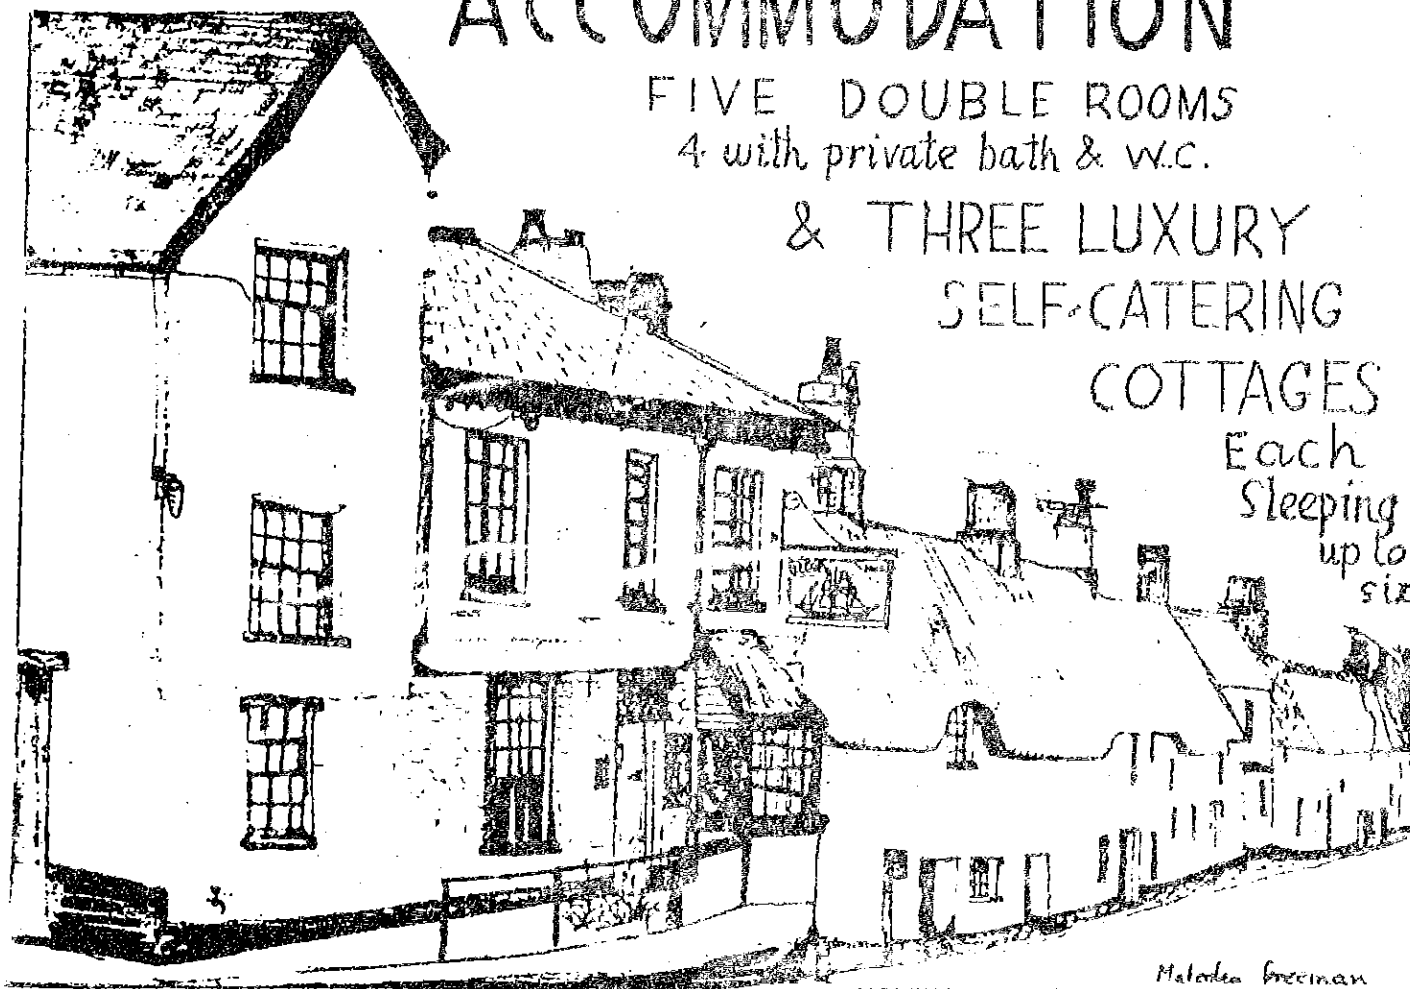 ACCOMMODATION
FIVE DOUBLE ROOMS
4 with private bath & W.C.
& THREE LUXURY
SELF-CATERING
COTTAGES
Each
Sleeping
up to
six
Freeman